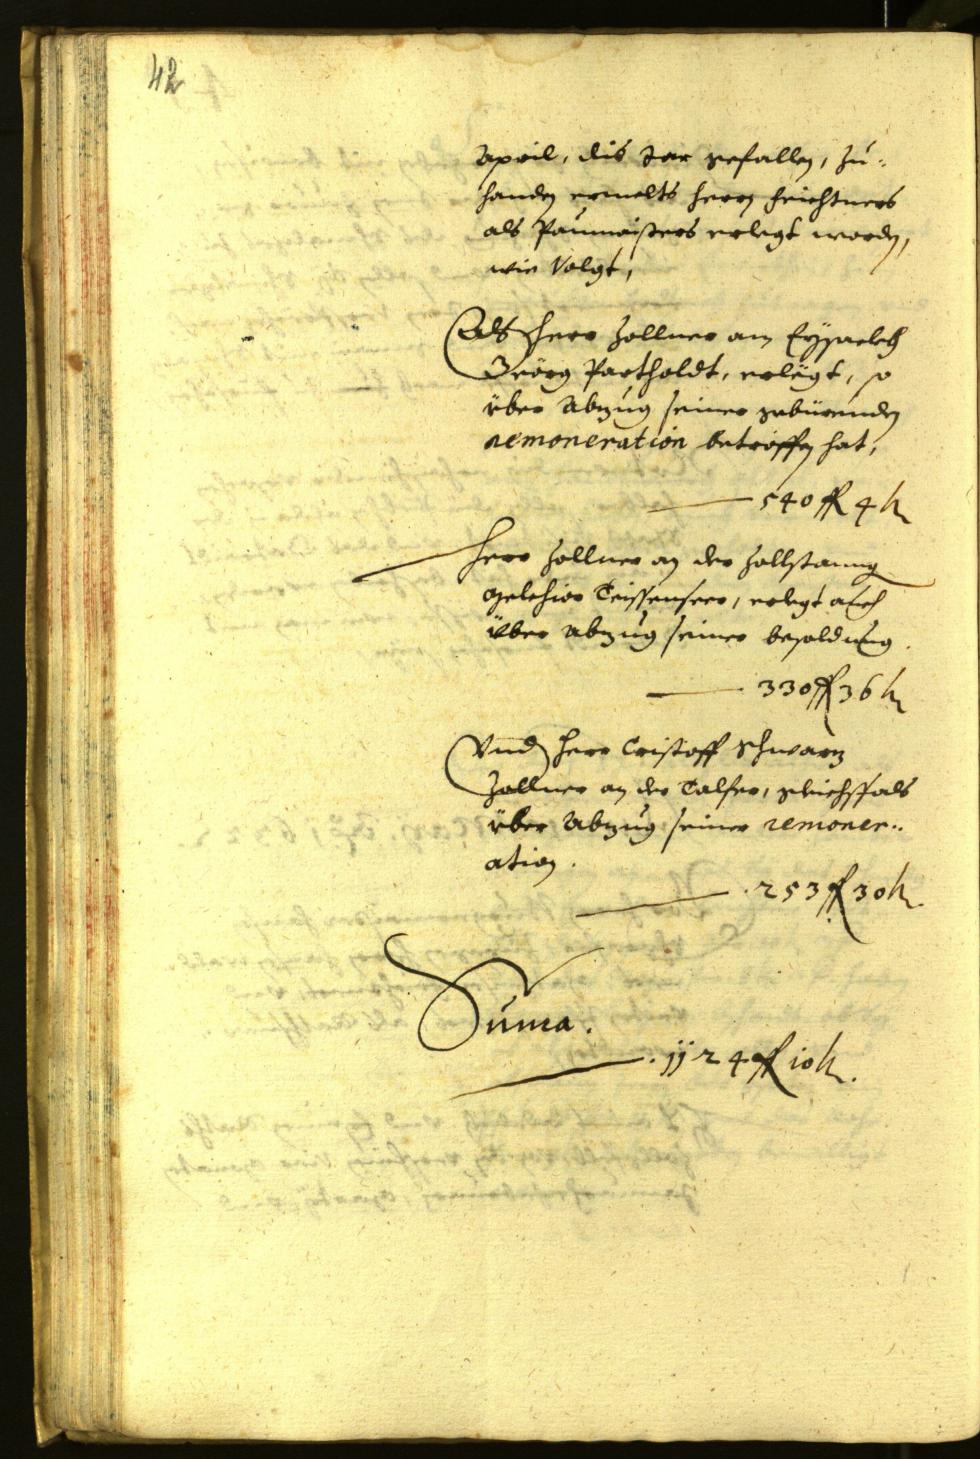 42
April, dis Jar gefallen, zu=
handen ermelts herrn Feichtners
als Paumaisters erlegt worden,
wie Volgt,
Als Herr Zollner am Eysackh
Geörg Partholdt, erlegt, so
über Abzug seiner gebürenden
remoneration betroffen hat,
540 fl 4 k
Herr Zollner an der Zollstanng
Melchior Teissenseer, erlegt auch
über Abzug seiner besoldung
330 fl 36 k
Vnd Herr Cristoff Schwarz
Zollner an der Talfer, gleichsfals
über Abzug seiner remoner=
ation.
253 fl 30 k.
Suma.
1124 fl 10 k.